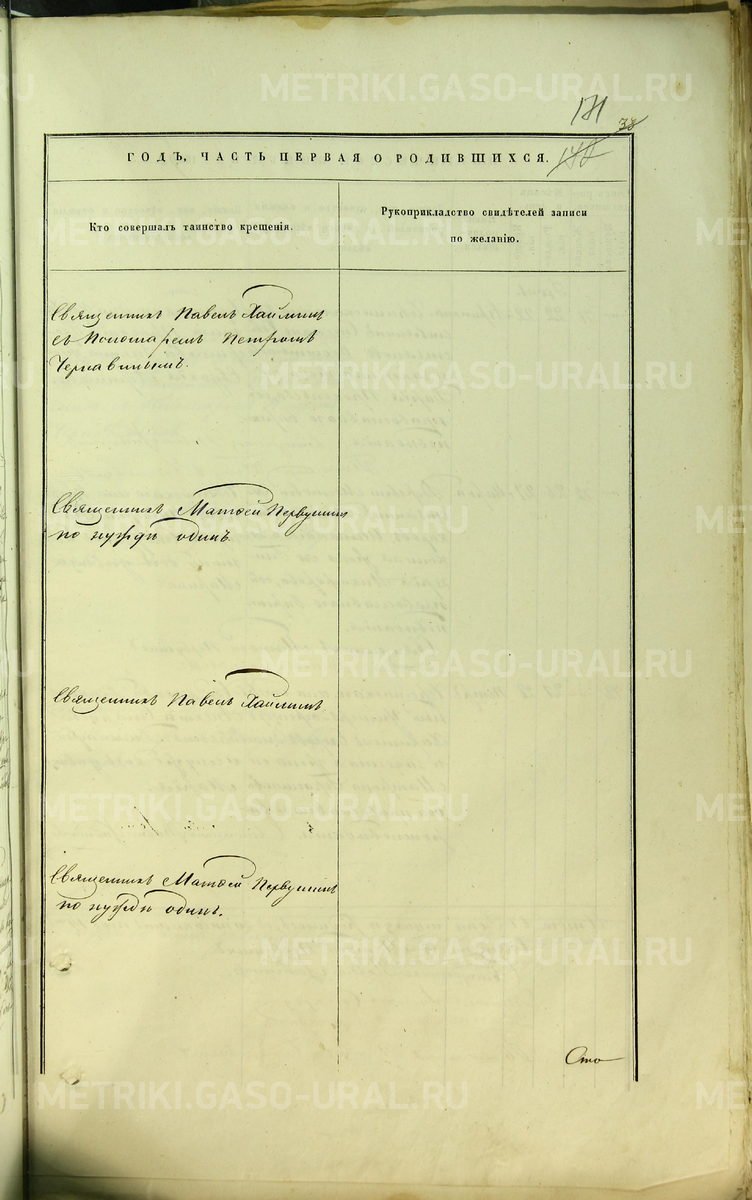 METRIKI.GASO-URAL.RU
171
38
ГОДЪ, ЧАСТЬ ПЕРВАЯ О РОДИВШИХСЯ.
Кто совершалъ таинство крещенія.
Рукоприкладство свидѣтелей записи
по желанію.
Священникъ Павелъ Хайминъ
съ Пономаремъ Петромъ
Чернавинымъ.
Священникъ Матѳей Первушинъ
по нуждѣ одинъ.
Священникъ Павелъ Хайминъ
Священникъ Матѳей Первушинъ
по нуждѣ одинъ.
Сто
METRIKI.GASO-URAL.RU